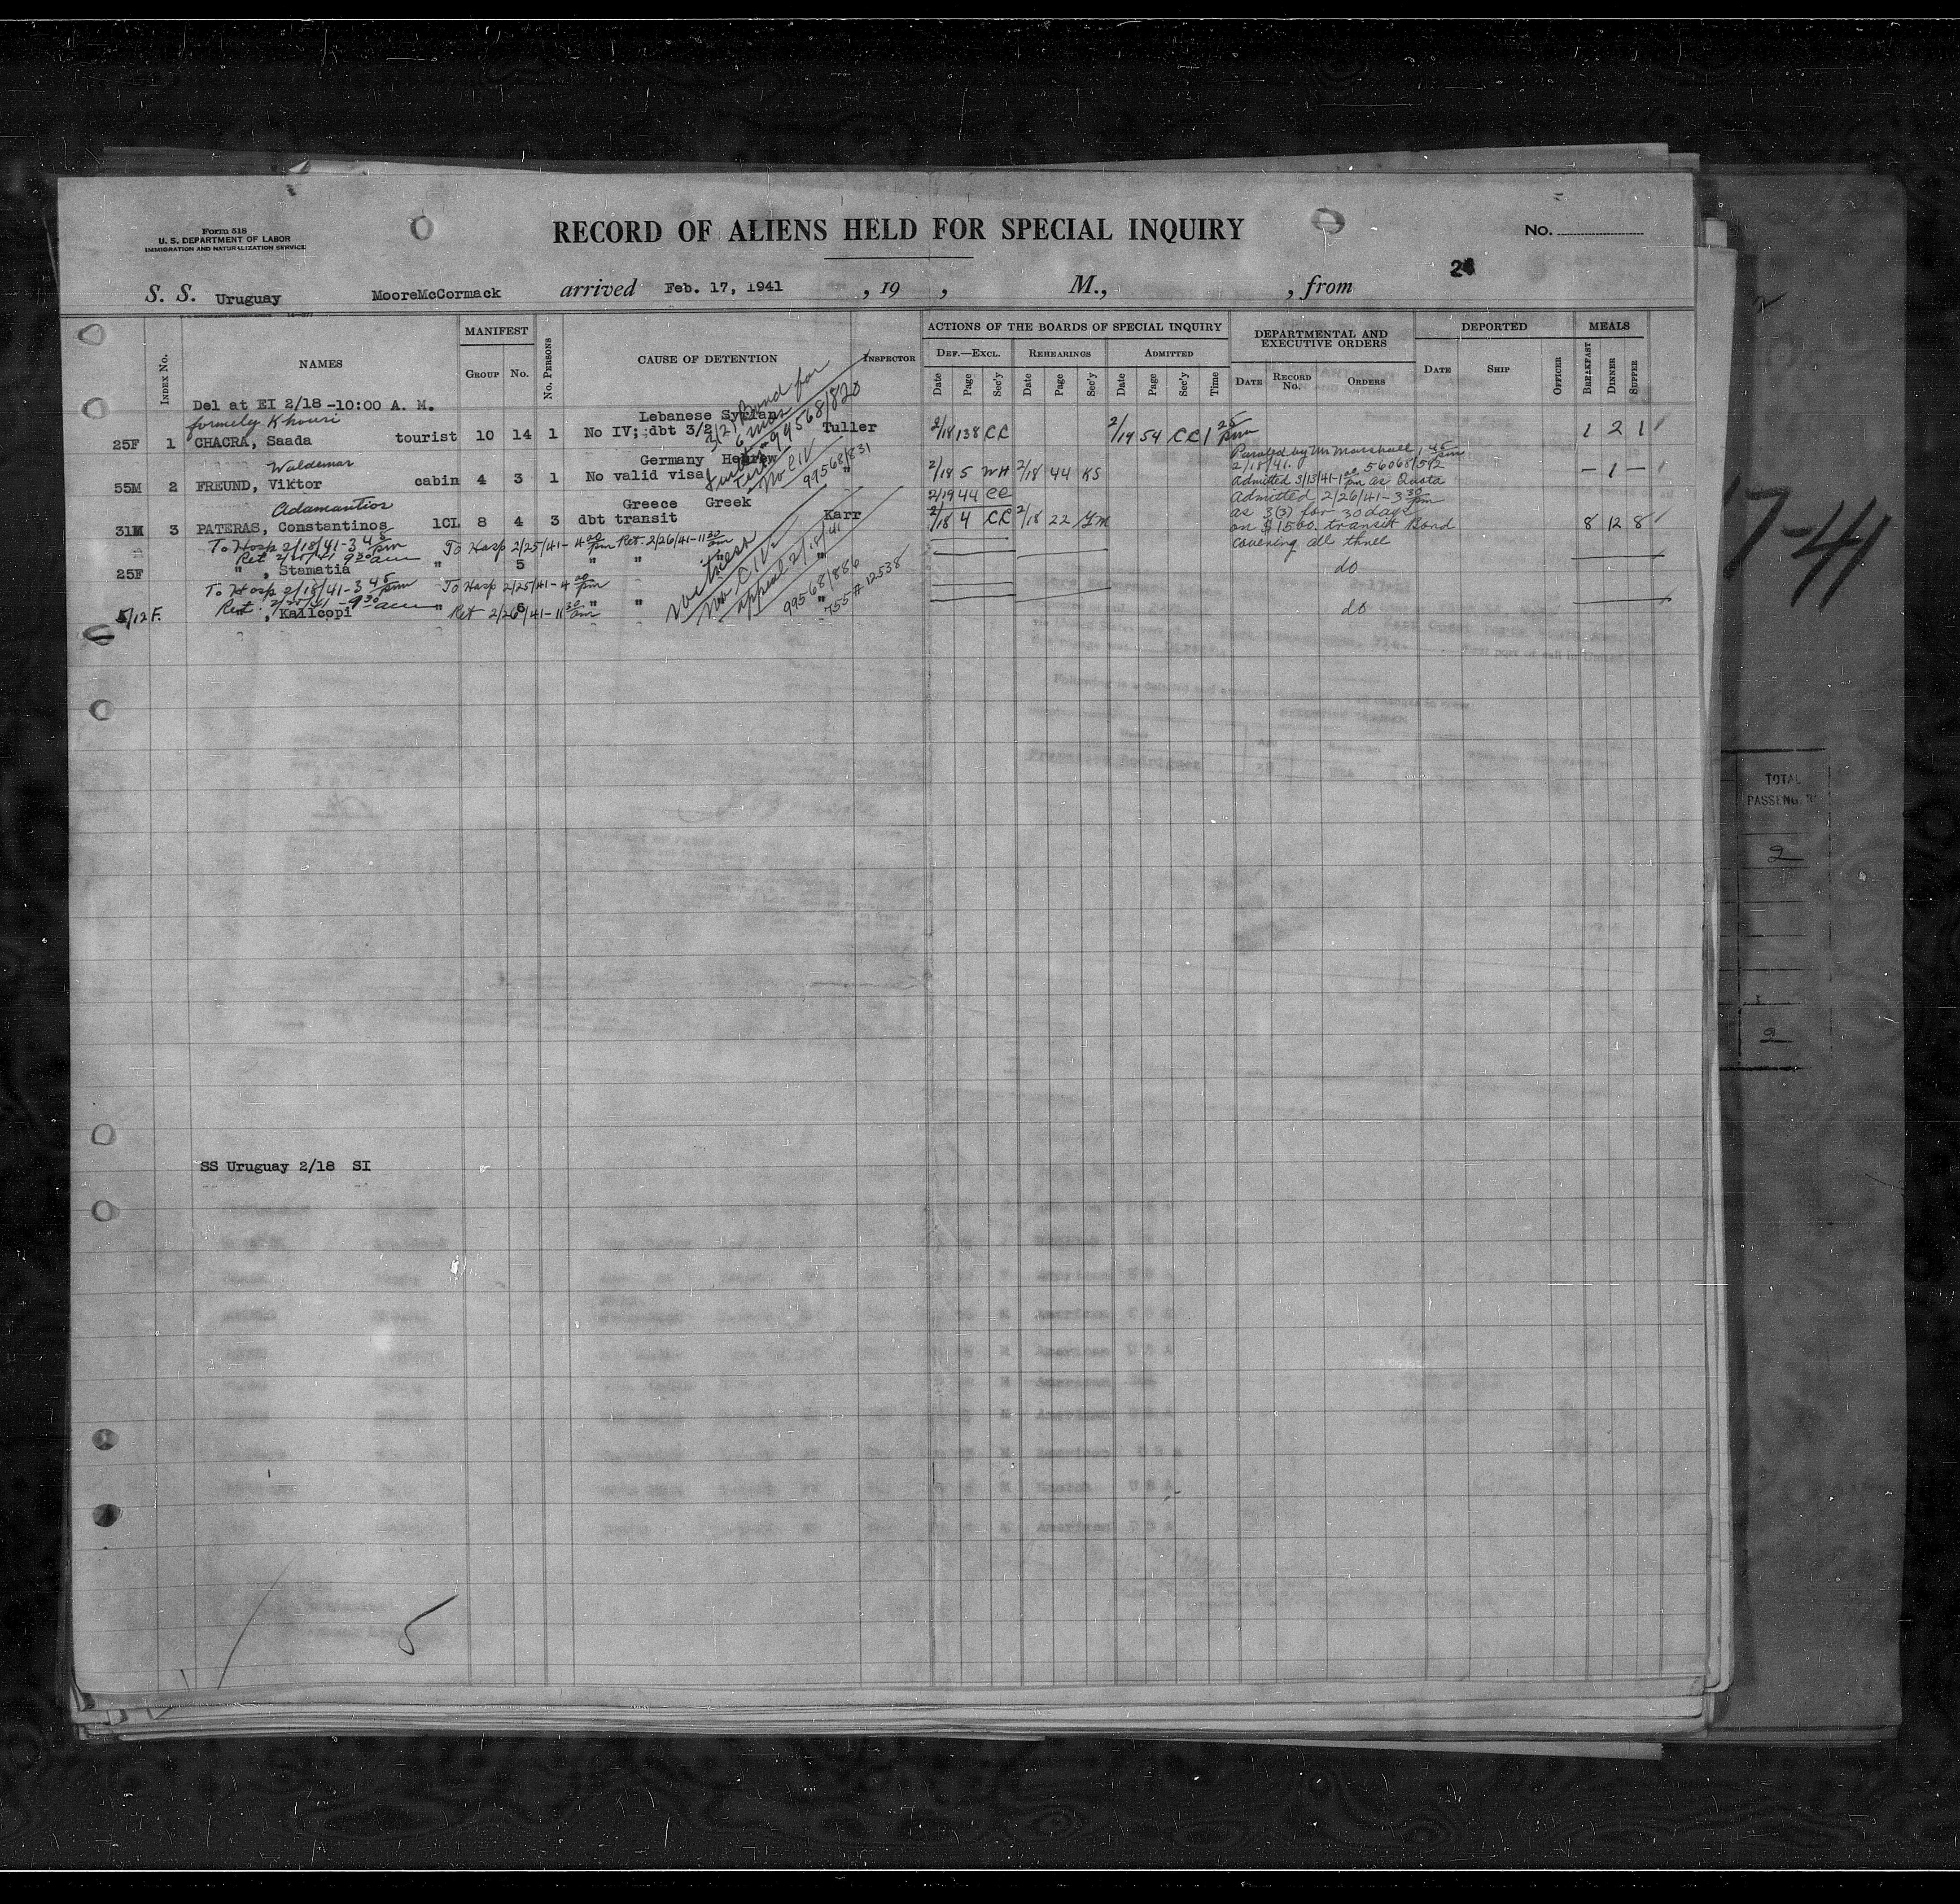 Form 518
U. S. DEPARTMENT OF LABOR
IMMIGRATION AND NATURALIZATION SERVICE
RECORD OF ALIENS HELD FOR SPECIAL INQUIRY
No.
24
S. S. Uruguay MooreMcCormack arrived Feb. 17, 1941 , 19 , M., , from
INDEX No. NAMES MANIFEST GROUP No. No. PERSONS CAUSE OF DETENTION INSPECTOR
ACTIONS OF THE BOARDS OF SPECIAL INQUIRY
DEF.—EXCL. REHEARINGS ADMITTED
Date Page Sec'y Date Page Sec'y Date Page Sec'y Time
DEPARTMENTAL AND EXECUTIVE ORDERS
DATE RECORD No. ORDERS
DEPORTED
DATE SHIP OFFICER
MEALS
BREAKFAST DINNER SUPPER
Del at EI 2/18 -10:00 A. M.
formely Khouri Lebanese Syrian
25F 1 CHACRA, Saada tourist 10 14 1 No IV; dbt 3/2 Tuller 2/18 138 CC 2/19 54 CC 1 25 pm 1 2 1
Bond for
6 mos
99568/820
Waldemar Germany Hebrew
55M 2 FREUND, Viktor cabin 4 3 1 No valid visa " 2/18 5 WH 2/18 44 KS – 1 –
No CIV
99568/831
Paroled by Mr Marshall 1 45 pm
2/18/41. 56068/592
Admitted 3/13/41-1 pm as Quota
2/19 44 CC
Adamantios Greece Greek
31M 3 PATERAS, Constantinos 1CL 8 4 3 dbt transit Karr 2/18 4 CC 2/18 22 8 12 8
Admitted 2/26/41-3 30 pm
as 3(3) for 30 days
on $1500. transit Bond
covering all three
To Hosp 2/18/41-3 45 pm To Hosp 2/25/41-4 20 pm Ret. 2/26/41-11 30 am
Ret 2/20/41 9 30 am
25F " , Stamatia " 5 " " do
To Hosp 2/18/41-3 45 pm To Hosp 2/25/41-4 20 pm
5/12 F. , Kalicopi " 6 " " " do
Ret 2/26/41-11 30 am
No CIV
appeal 2/18/41
99568/886
SS Uruguay 2/18 SI
5
7-41
TOTAL
PASSENG
2
2